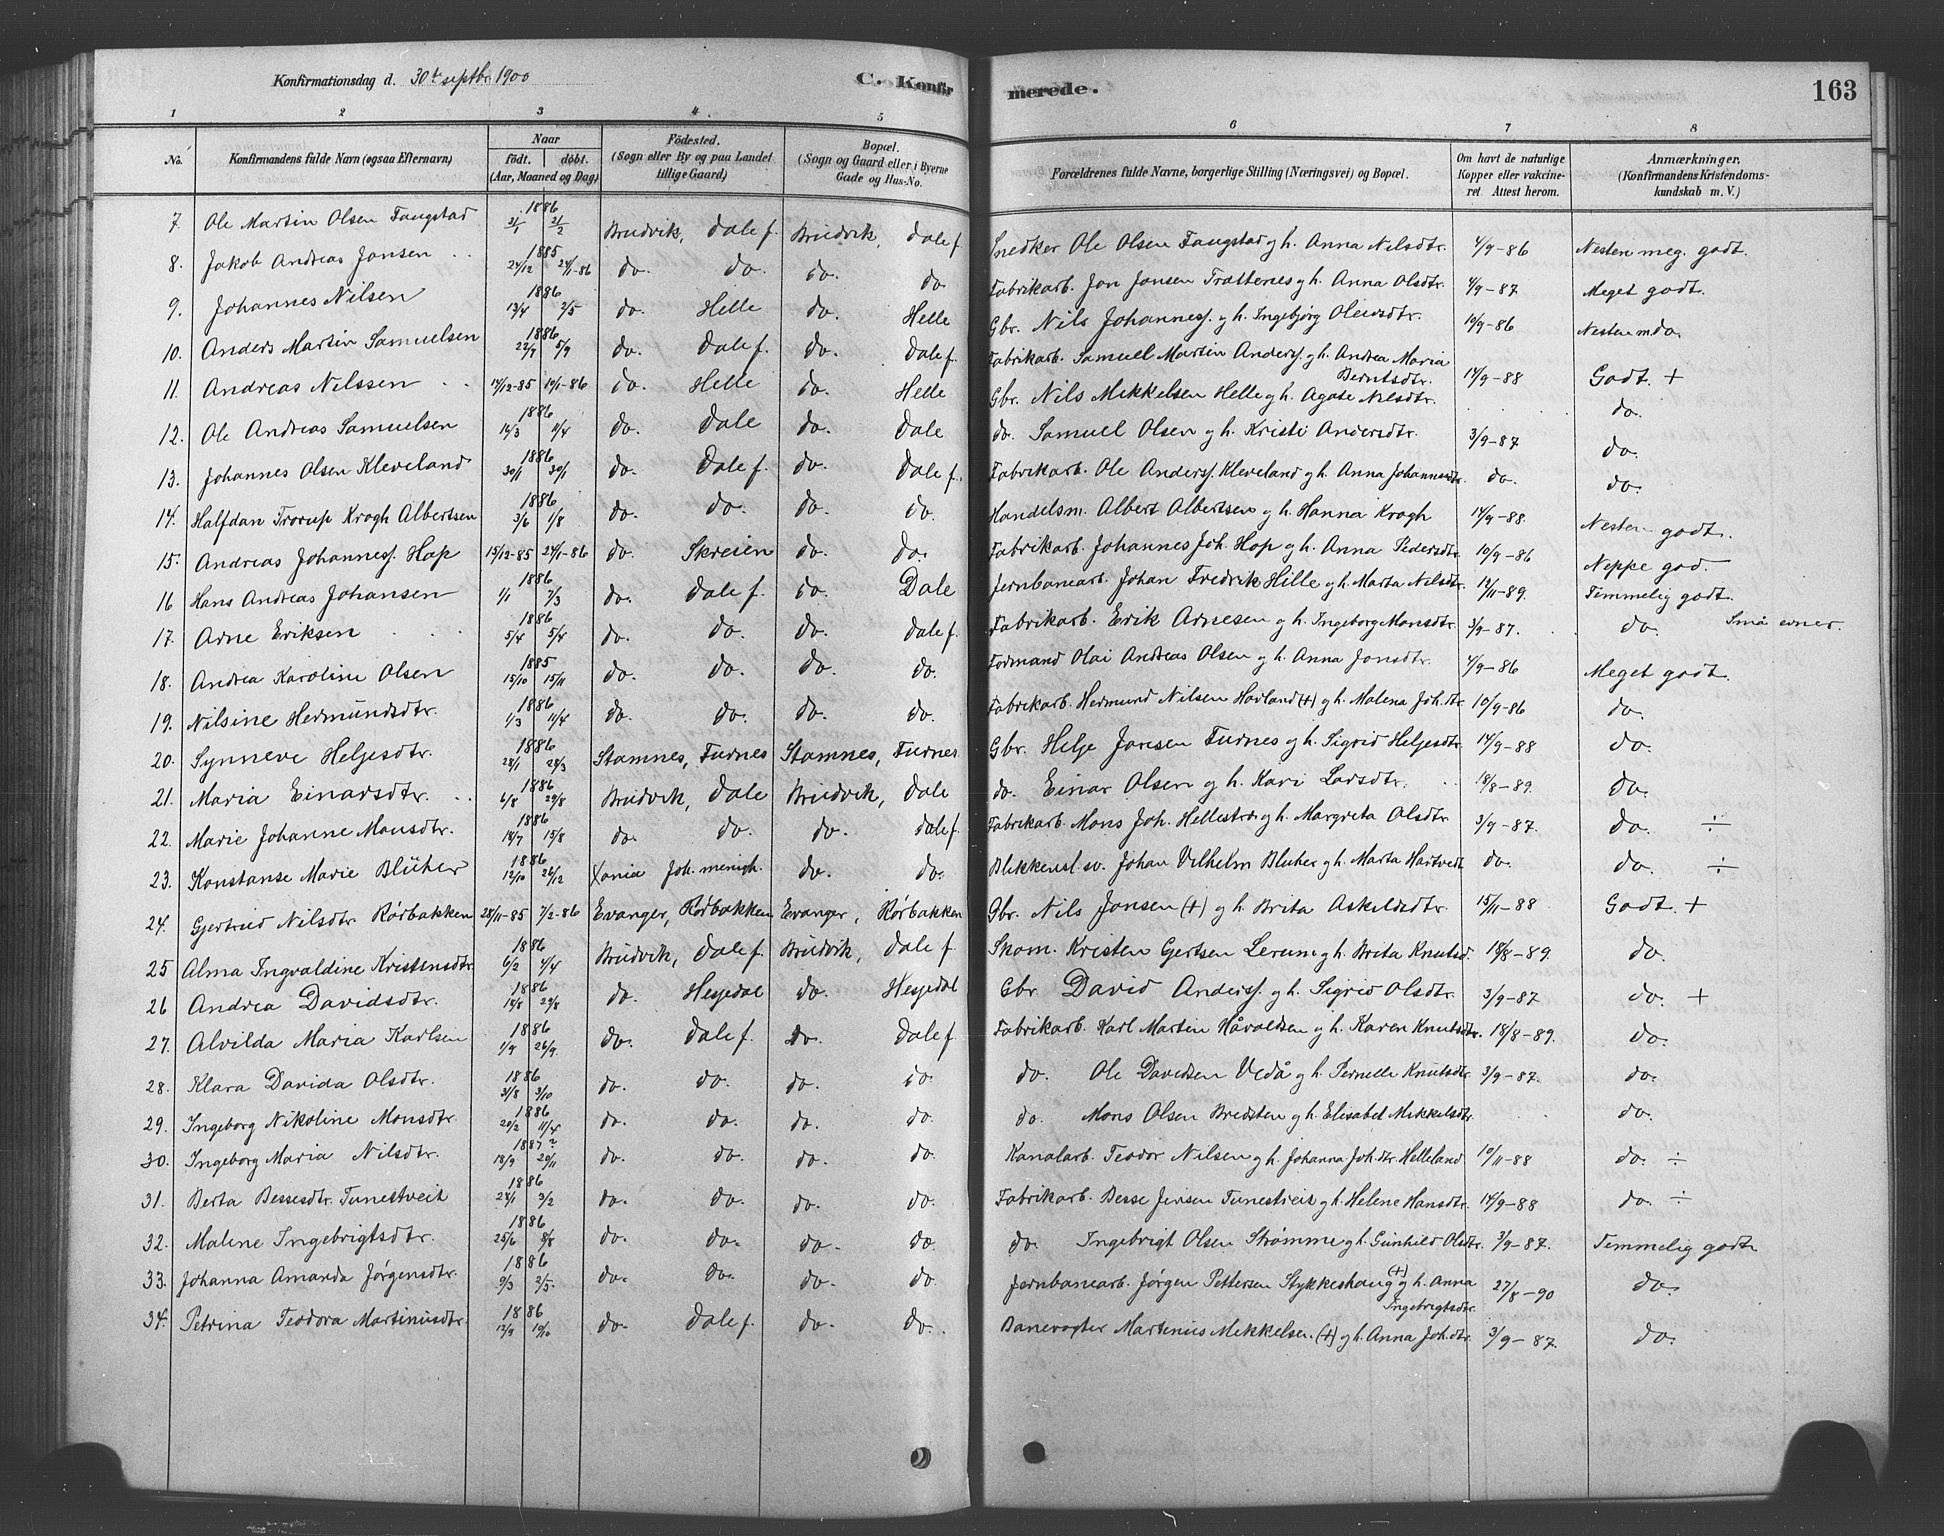 Konfirmationsdag d. 30te septbr. 1900 C. Konfirmerede. 163
1 2 3 4 5 6 7 8
No. Konfirmandens fulde Navn (ogsaa Efternavn) Naar født. døbt. (Aar, Maaned og Dag) Fødested. (Sogn eller By og paa Landet tillige Gaard) Bopæl. (Sogn og Gaard eller i Byerne Gade og Hus-No. Forældrenes fulde Navne, borgerlige Stilling (Næringsvei) og Bopæl. Om havt de naturlige Kopper eller vakcineret. Attest herom. Anmærkninger, (Konfirmandens Kristendomskundskab m. V.)
7. Ole Martin Olsen Faugstad 1886 3/1 21/2 Brudvik, Dale f. Brudvik, Dale f. Snedker Ole Olsen Faugstad g h. Anna Nilsdtr. 4/9-86 Nesten meg. godt.
8. Jakob Andreas Jonsen 1885 24/12 24/1-86 do. do. do. do Fabrikarb. Jon Jonsen Trætternes g h. Anna Olsdtr. 4/9-87 Meget godt.
9. Johannes Nilsen 1886 13/4 2/5 do. Helle do. Helle Gbr. Nils Johannesj. g h. Ingebjørg Oleivsdtr. 10/9-86 Nesten m. do.
10. Anders Martin Samuelsen 1886 22/7 5/9 do. Dale f. do. Dale f. Fabrikarb. Samuel Martin Andersj. g h. Andrea Maria Berntsdtr. 14/9-88 Godt. +
11. Andreas Nilssen 14/12-85 14/1-86 do. Helle do. Helle Gbr. Nils Mikkelsen Helle g h. Agate Nilsdtr. do.
12. Ole Andreas Samuelsen 1886 14/3 11/4 do. Dale do. Dale do. Samuel Olsen g h. Kristi Andersdtr. 3/9-87 do.
13. Johannes Olsen Kleveland 1886 30/1 30/1 do. Dale f. do. Dale f. Fabrikarb. Ole Andersj. Kleveland g h. Anna Johannesdtr. do. do.
14. Halfdan Trorup Krogh Albertsen 1886 3/6 1/8 do. do. do. do. Handelsm. Albert Albertsen g h. Hanna Krogh 14/9-88. Nesten godt.
15. Andreas Johannesj. Hop 15/12-85 24/1-86 do. Skreien do. do. Fabrikarb. Johannes Joh. Hop g h. Anna Pedersdtr. 10/9-86 Neppe god.
16 Hans Andreas Johansen 1886 1/1 7/3 do. Dale f. do. Dale Jernbanearb. Johan Fredrik Hille g h. Marta Nilsdtr. 12/11-89. Temmelig godt.
17. Arne Eriksen 1886 5/4 5/4 do. do. do. Dale f. Fabrikarb. Erik Arnesen g h. Ingeborg Monsdtr. 3/9-87. do. Små evner.
18. Andrea Karoline Olsen 1885 15/10 15/11 do. do. do. do. Formand Olai Andreas Olsen g h. Anna Jonsdtr. 4/9-86 Meget godt.
19. Nilsine Hermundsdtr. 1886 1/3 11/4 do. do. do. do. Fabrikarb. Hermund Nilsen Havland (+) g h. Malena Joh. dtr. 10/9-86 do.
20. Synneve Heljesdtr. 1886 28/1 28/3 Stamnes, Furnes Stamnes, Furnes Gbr. Helje Jonsen Furnes g h. Sigrid Heljesdtr. 14/9-88 do.
21. Maria Einarsdtr. 1886 6/8 29/8 Brudvik, Dale Brudvik, Dale do. Einar Olsen g h. Kari Larsdtr. 18/8-89. do.
22. Marie Johanne Monsdtr. 1886 18/7 15/8 do. do. do. Dale f. Fabrikarb. Mons Joh. Hellestræ g h. Margreta Olsdtr. 3/9-87. do. ÷
23. Konstanse Marie Blüher 1886 12/10 26/12 Xania Joh. menigh. do. do. Blikkensl. sv. Johan Vilhelm Bluher g h. Marta Hartvedt do. do. ÷
24. Gjertrud Nilsdtr. Rørbakken 28/11-85 7/2-86 Evanger, Rørbakken Evanger, Rørbakken Gbr. Nils Jonsen (+) g h. Brita Askildsdtr. 15/11-88 Godt. +
25 Alma Ingvaldine Kristensdtr. 1886 6/2 4/4 Brudvik, Dale f. Brudvik, Dale f. Skom. Kristen Gjertsen Lerum g h. Brita Knutsd. 18/8-89. do.
26 Andrea Davidsdtr. 1886 14/8 29/8 do. Hesjedal do. Hesjedal Gbr David Andersj. g h. Sigrid Olsdtr. 3/9-87 do. +
27. Alvilda Maria Karlsen 1886 1/9 26/9. do. Dale f. do. Dale f. Fabrikarb. Karl Martin Håvaldsen g h. Karen Knutsdtr. 18/8-89. do.
28. Klara Davida Olsdtr. 1886 31/8 3/10 do. do. do. do. do. Ole Davidsen Vedå g h. Pernelle Knutsdtr. 3/9-87. do.
29. Ingeborg Nikoline Monsdtr. 1886 20/2 11/4 do. do. do. do. do. Mons Olsen Bredsten g h. Elisabet Mikkelsdtr. do.
30. Ingeborg Maria Nilsdtr. 1887? 18/9 20/11 do. do. do. do. Kanalarb. Teodor Nilsen g h. Johanna Joh.dtr. Helleland 10/11-88 do. ÷
31. Berta Bessesdtr. Tunestveit 1886 24/1 2/2 do. do. do. do. Fabrikarb. Besse Jensen Tunestveit g h. Helene Hansdtr. 14/9-88 do. ÷
32. Malene Ingebrigtsdtr. 1886 25/6 8/8 do. do. do. do. do. Ingebrigt Olsen Strømme g h. Gunhild Olsdtr. 3/9-87. Temmelig godt
33. Johanna Amanda Jørgensdtr. 1886 9/3 2/5. do. do. do. do. Jernbanearb. Jørgen Pettersen Stykkeshaug (+) g h. Anna Ingebrigtsdtr. 27/8-90 do.
34. Petrina Teodora Martinusdtr. 1886 12/9 10/10 do. Dale f. do. do. Banevogter Martinius Mikkelsen. (+) g h. Anna Joh.dtr. 3/9-87. do.